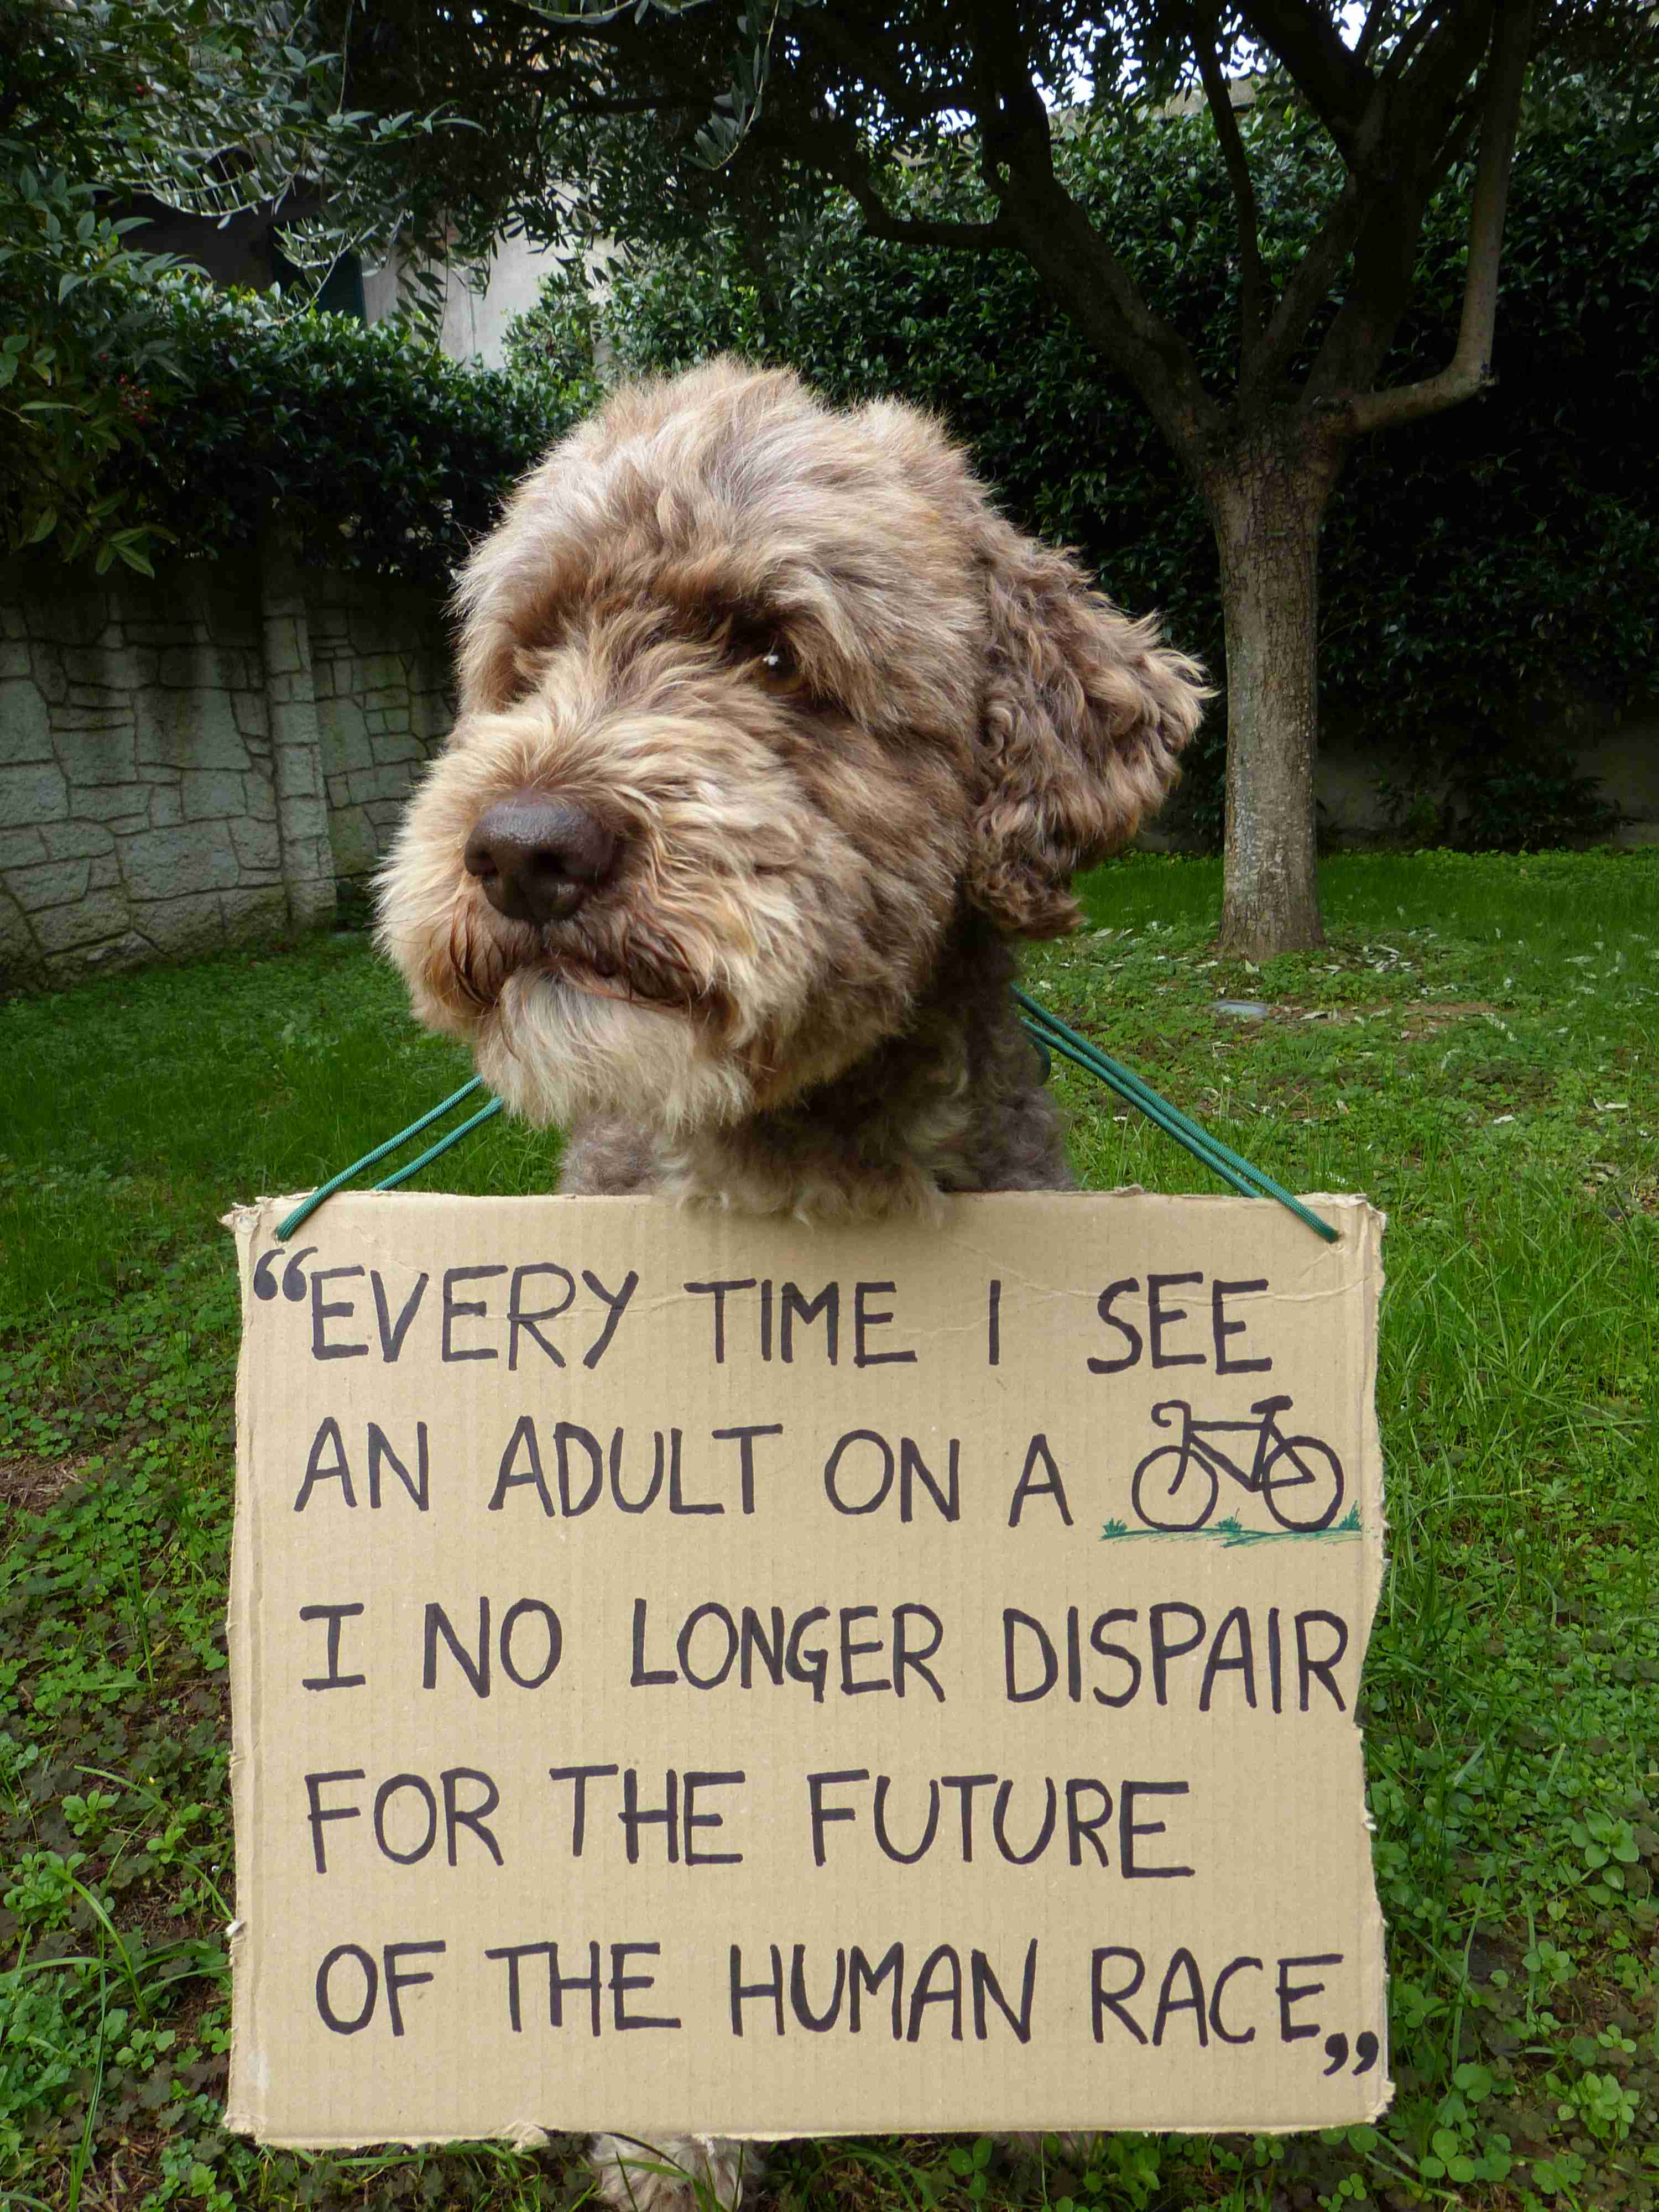 “EVERY TIME I SEE
AN ADULT ON A
I NO LONGER DISPAIR
FOR THE FUTURE
OF THE HUMAN RACE„